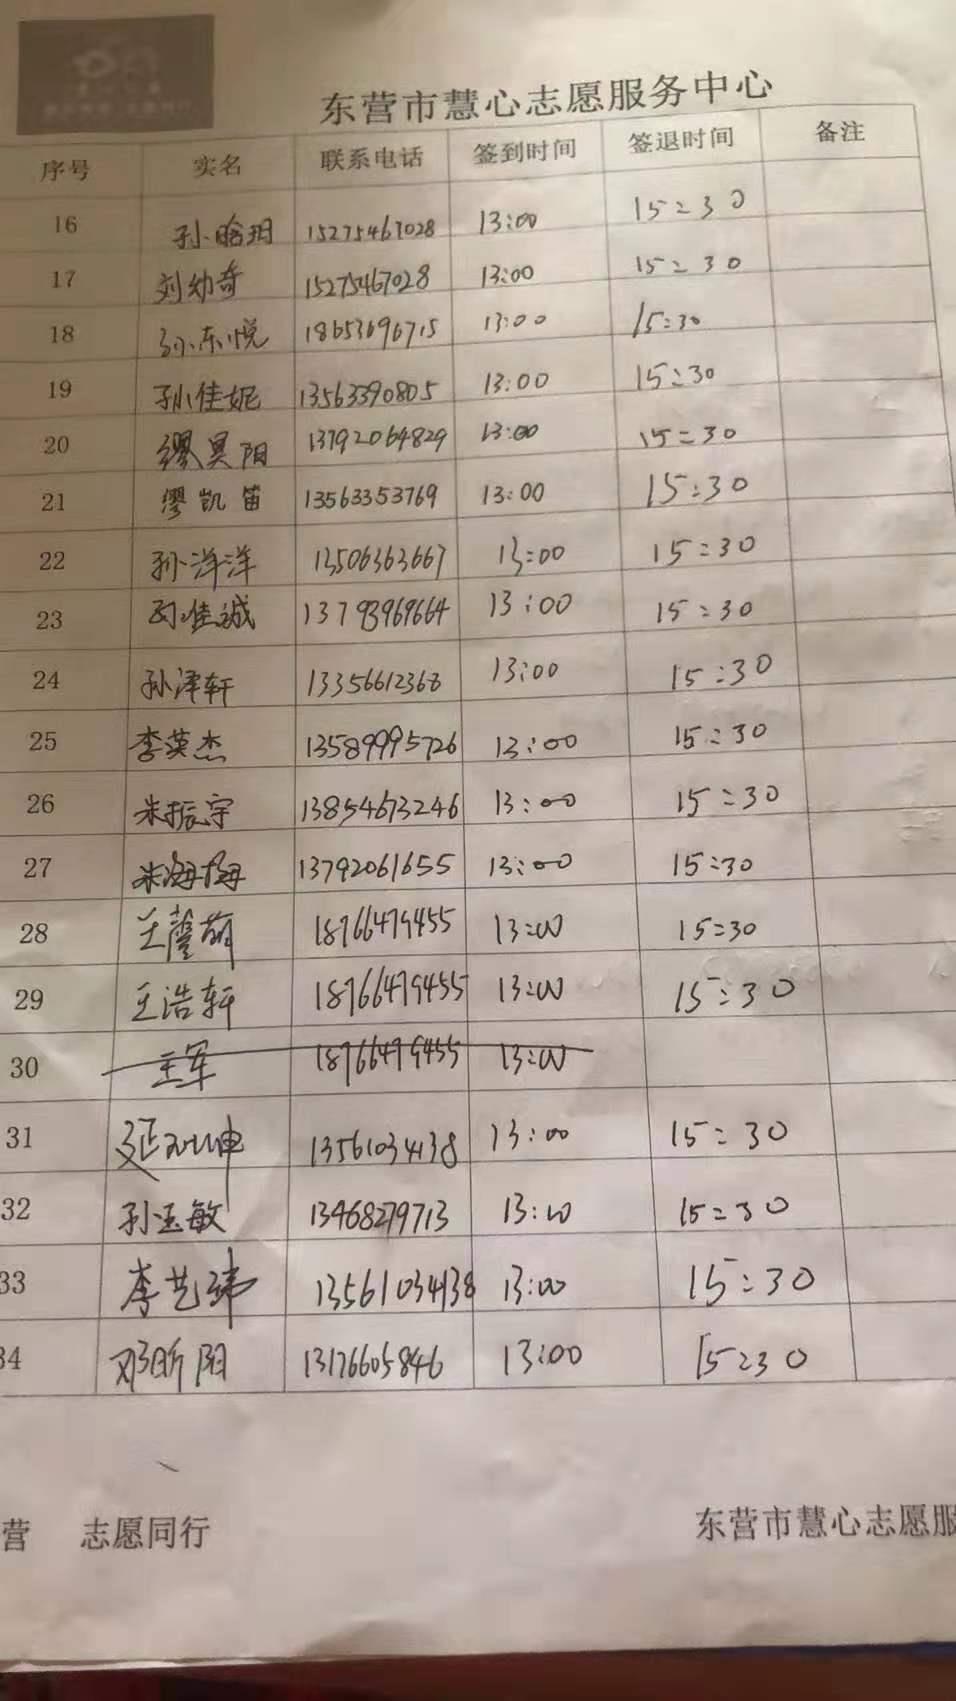 东营市慧心志愿服务中心
序号 实名 联系电话 签到时间 签退时间 备注
16 孙晗玥 15275467028 13:00 15:30
17 刘幼奇 15275467028 13:00 15:30
18 孙东悦 18653696715 13:00 15:30
19 孙佳妮 13563390805 13:00 15:30
20 缪昊阳 13792064829 13:00 15:30
21 缪凯笛 13563353769 13:00 15:30
22 孙洋洋 13506363667 13:00 15:30
23 孙佳诚 13793969664 13:00 15:30
24 孙泽轩 13356612368 13:00 15:30
25 李英杰 13589995726 13:00 15:30
26 朱振宇 13854673246 13:00 15:30
27 朱海梅 13792061655 13:00 15:30
28 王馨萌 18766479455 13:00 15:30
29 王浩轩 18766479455 13:00 15:30
30 王军 18766479455 13:00
31 延坤 13561034138 13:00 15:30
32 孙玉敏 13468279713 13:00 15:30
33 李艺玮 13561034138 13:00 15:30
34 邓昕阳 13176605846 13:00 15:30
营 志愿同行 东营市慧心志愿服